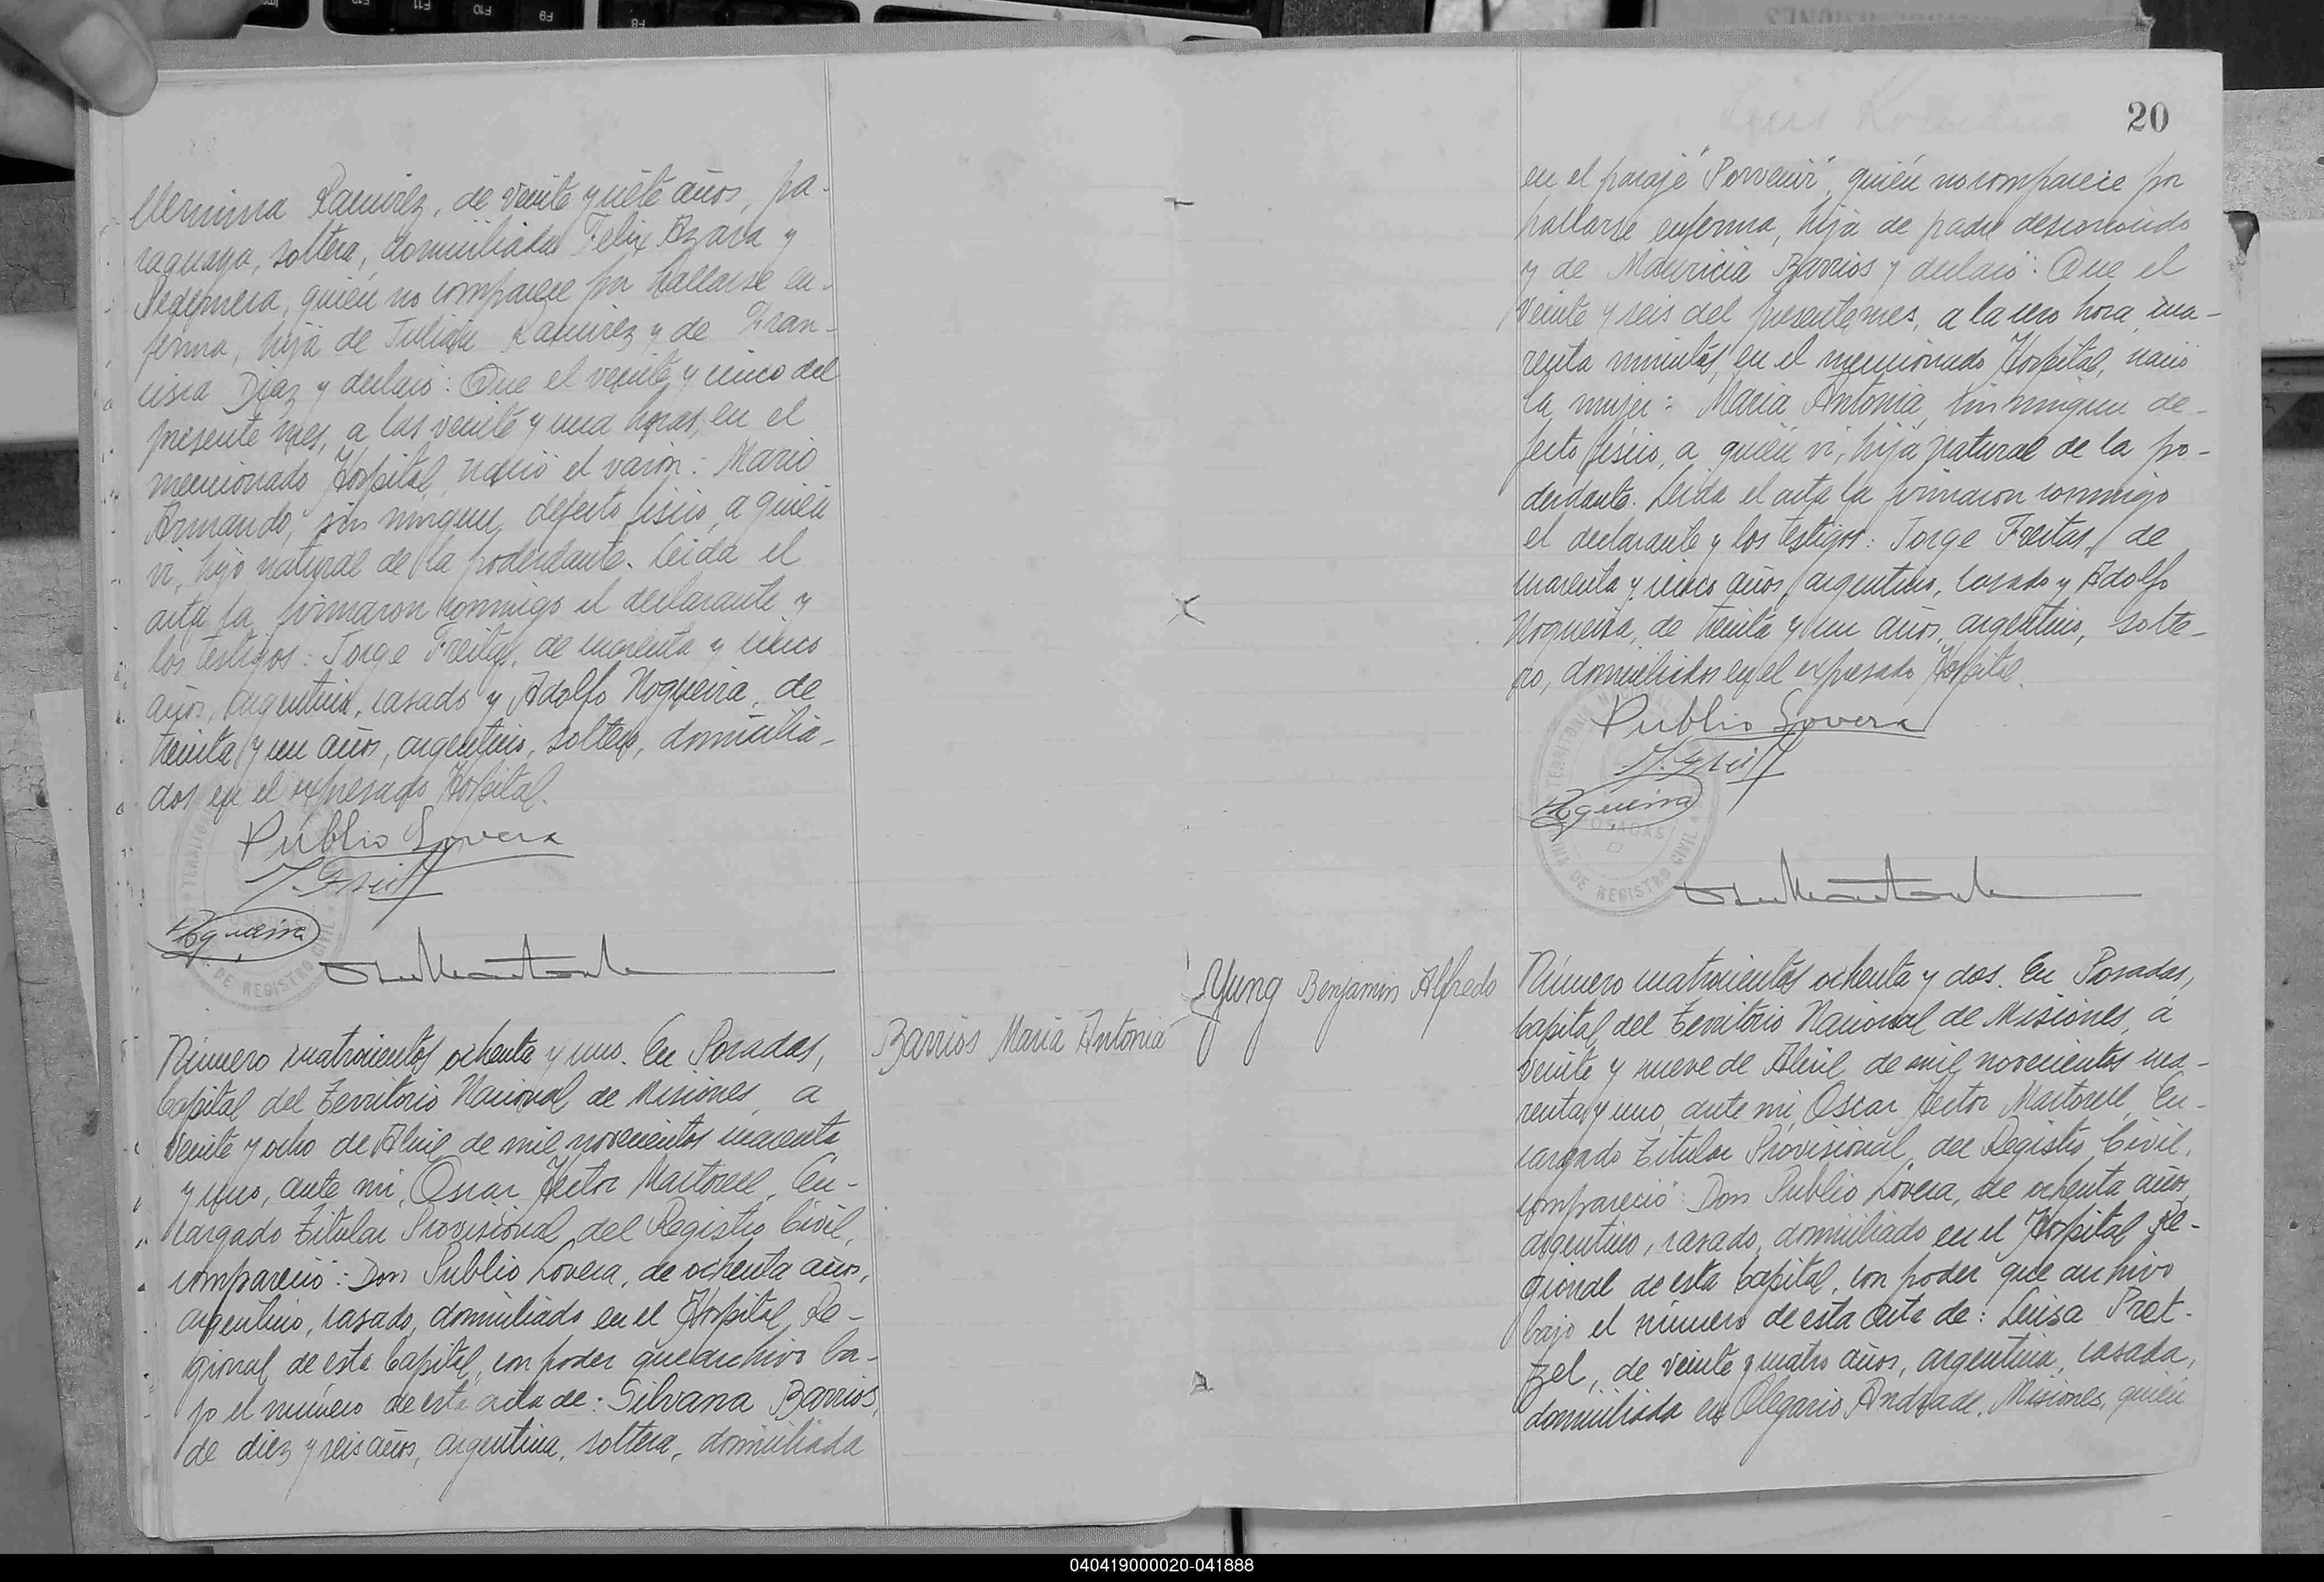 Herminia Ramirez, de veinte y siete años, pa-
raguaya, soltera, domiciliada Felix Azara y
Pedernera, quién no comparece por hallarse en-
ferma, hija de Julián Ramirez y de Fran-
cisca Diaz y declaró: Que el veinte y cinco del
presente mes, a las veinte y una horas, en el
mencionado Hospital, nació el varón: Mario
Armando, sin ningun defecto físico, a quién
vi, hijo natural de la poderdante. Leida el
acta la firmaron conmigo el declarante y
los testigos: Jorge Freitas, de cuarenta y cinco
años, argentino, casado y Adolfo Nogueira, de
treinta y un años, argentino, soltero, domicilia-
dos en el expresado Hospital.
Publio Lovera
J. Freitas
Nogueira
DE REGISTRO CIVIL
Número cuatrocientos ochenta y uno. En Posadas,
Capital del Territorio Nacional de Misiones, a
veinte y ocho de Abril de mil novecientos cuarenta
y uno, ante mi, Oscar Hector Martorell, En-
cargado Titular Provisional del Registro Civil,
compareció: Don Publio Lovera, de ochenta años,
argentino, casado, domiciliado en el Hospital Re-
gional de esta Capital, con poder que archivo ba-
jo el número de esta acta de: Silvana Barrios,
de diez y seis años, argentina, soltera, domiciliada
Barrios Maria Antonia
20
en el paraje "Porvenir", quién no comparece por
hallarse enferma, hija de padre desconocido
y de Mauricia Barrios y declaró: Que el
veinte y seis del presente mes, a la cero hora cua-
renta minutos, en el mencionado Hospital, nació
la mujer: Maria Antonia, sin ningun de-
fecto físico, a quién vi, hija natural de la po-
derdante. Leida el acta la firmaron conmigo
el declarante y los testigos: Jorge Freitas, de
cuarenta y cinco años, argentino, casado y Adolfo
Nogueira, de treinta y un años, argentino, solte-
ro, domiciliados en el expresado Hospital.
Publio Lovera
J. Freitas
Nogueira
POSADAS
DE REGISTRO CIVIL
Yung Benjamin Alfredo
Número cuatrocientos ochenta y dos. En Posadas,
Capital del Territorio Nacional de Misiones, á
veinte y nueve de Abril de mil novecientos cua-
renta y uno, ante mi, Oscar Hector Martorell, En-
cargado Titular Provisional del Registro Civil,
compareció: Don Publio Lovera, de ochenta años,
argentino, casado, domiciliado en el Hospital Re-
gional de esta Capital, con poder que archivo
bajo el número de esta acta de: Luisa Pret-
zel, de veinte y cuatro años, argentina, casada,
domiciliada en Olegario Andrade, Misiones, quién
040419000020-041888